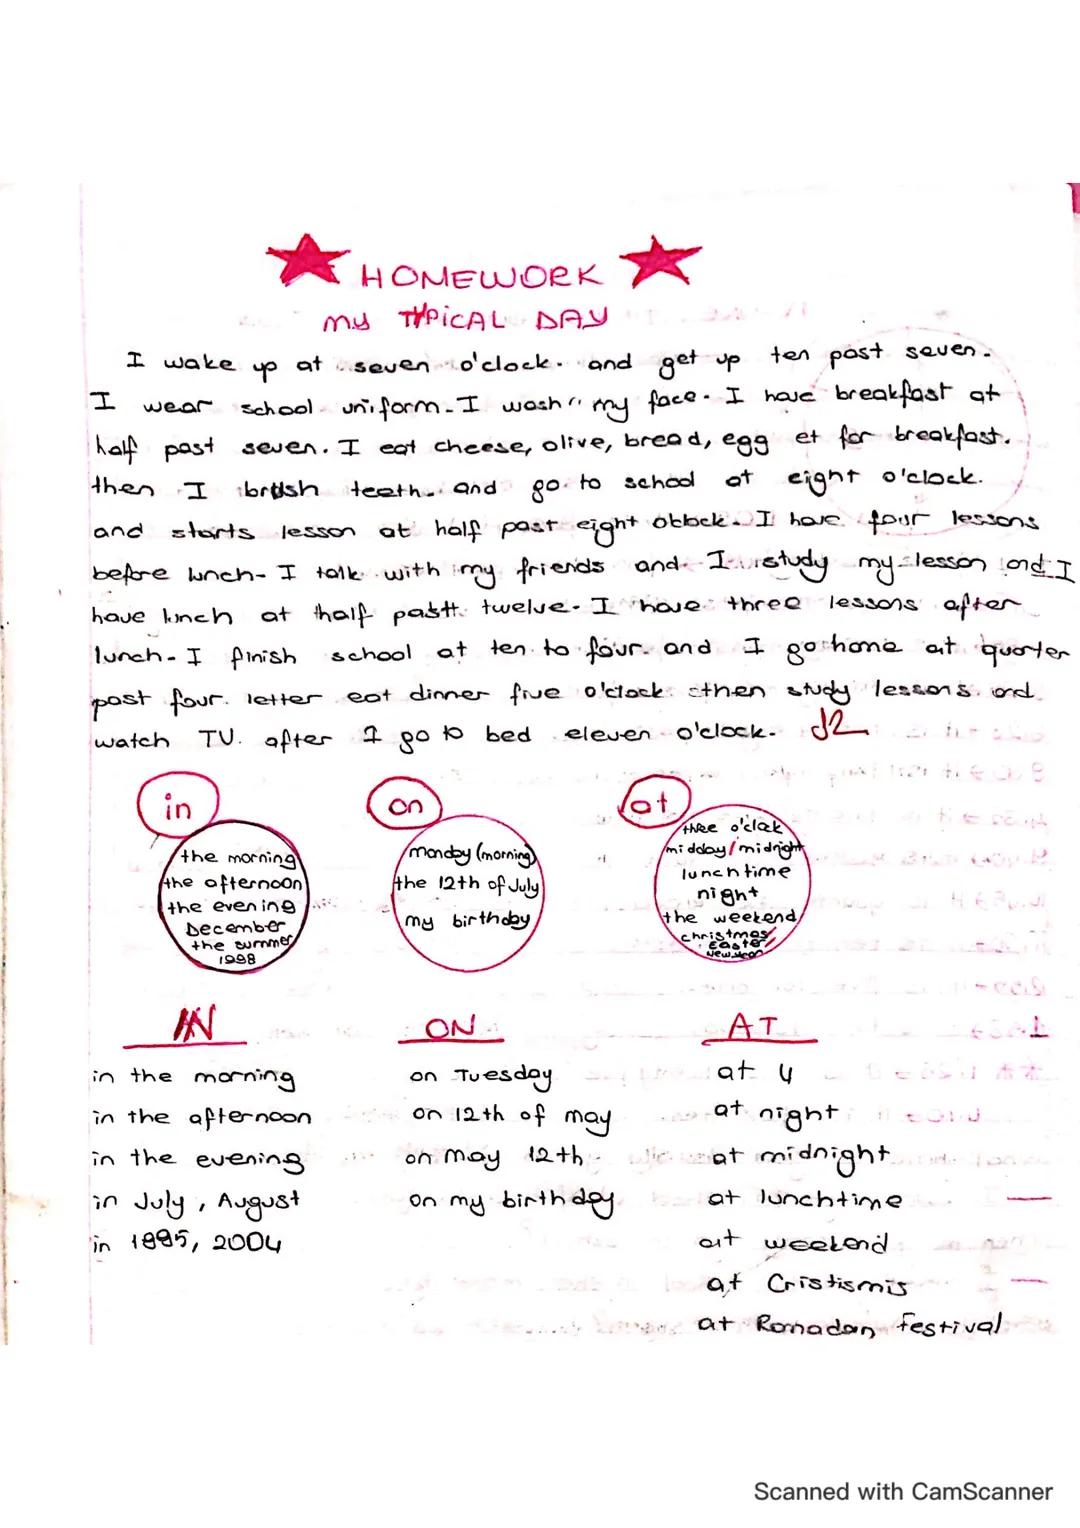 HOMEWORK
my TYPiCAL DAY
I wake up at seven o'clock. and get up ten past seven.
I wear school uniform. I wash my face. I have breakfast at
half past seven. I eat cheese, olive, bread, egg et for breakfast.
then I brush teeth. and go to school at eight o'clock.
and starts lesson at half past eight o'clock. I have four lessons
before lunch. I talk with my friends and I study my lesson and I
have lunch at half past twelve. I have three lessons after
lunch. I finish school at ten to four. and I go home at quarter
past four. letter eat dinner five o'clock. then study lessons and
watch TV. after I go to bed eleven o'clock.
in on at
the morning
the afternoon
the evening
December
the summer
1998
monday (morning)
the 12th of July
my birthday
three o'clock
midday/midnight
lunchtime
night
the weekend
christmas/
Easter/
New year
IN ON AT
in the morning on Tuesday at 4
in the afternoon on 12th of may at night
in the evening on may 12th at midnight
in July, August on my birthday at lunchtime
in 1995, 2004 at weekend
at Cristismis
at Ramadan festival
Scanned with CamScanner